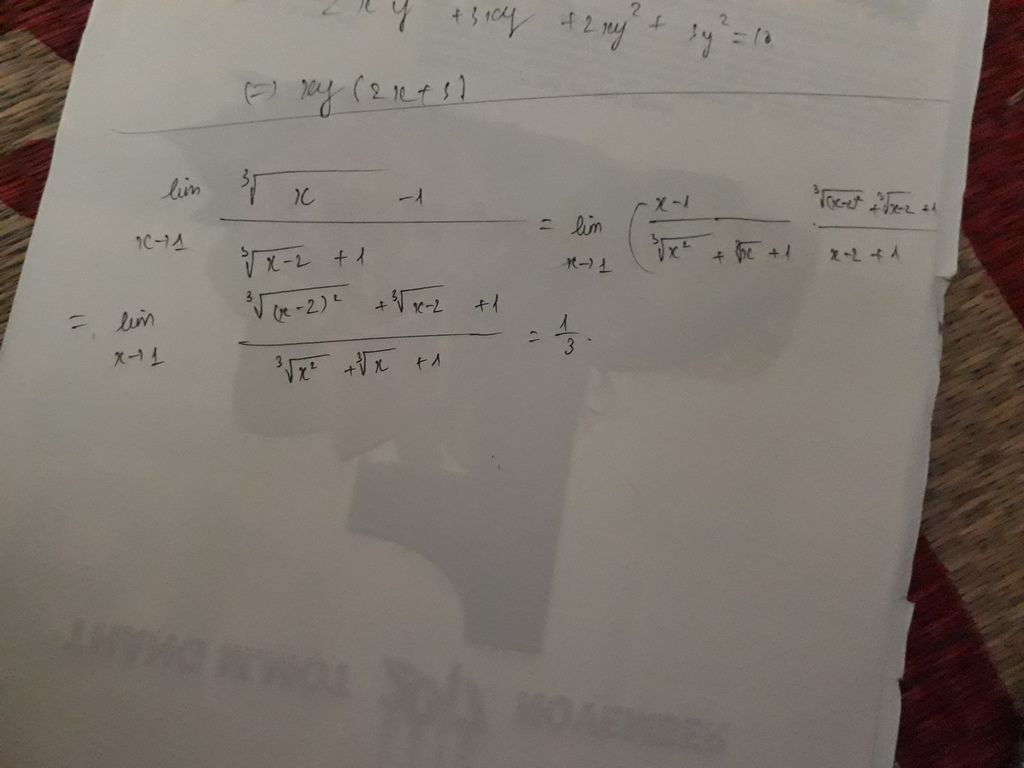 + 3xy + 2xy² + 3y² = 10
(=) xy (2x+3)
lim x→1 (∛x - 1)/(∛(x-2) + 1) = lim x→1 ( (x-1)/(∛x² + ∛x + 1) (∛(x-2)² + ∛(x-2) + 1)/(x-2+1)
= lim x→1 (∛(x-2)² + ∛(x-2) + 1)/(∛x² + ∛x + 1) = 1/3.